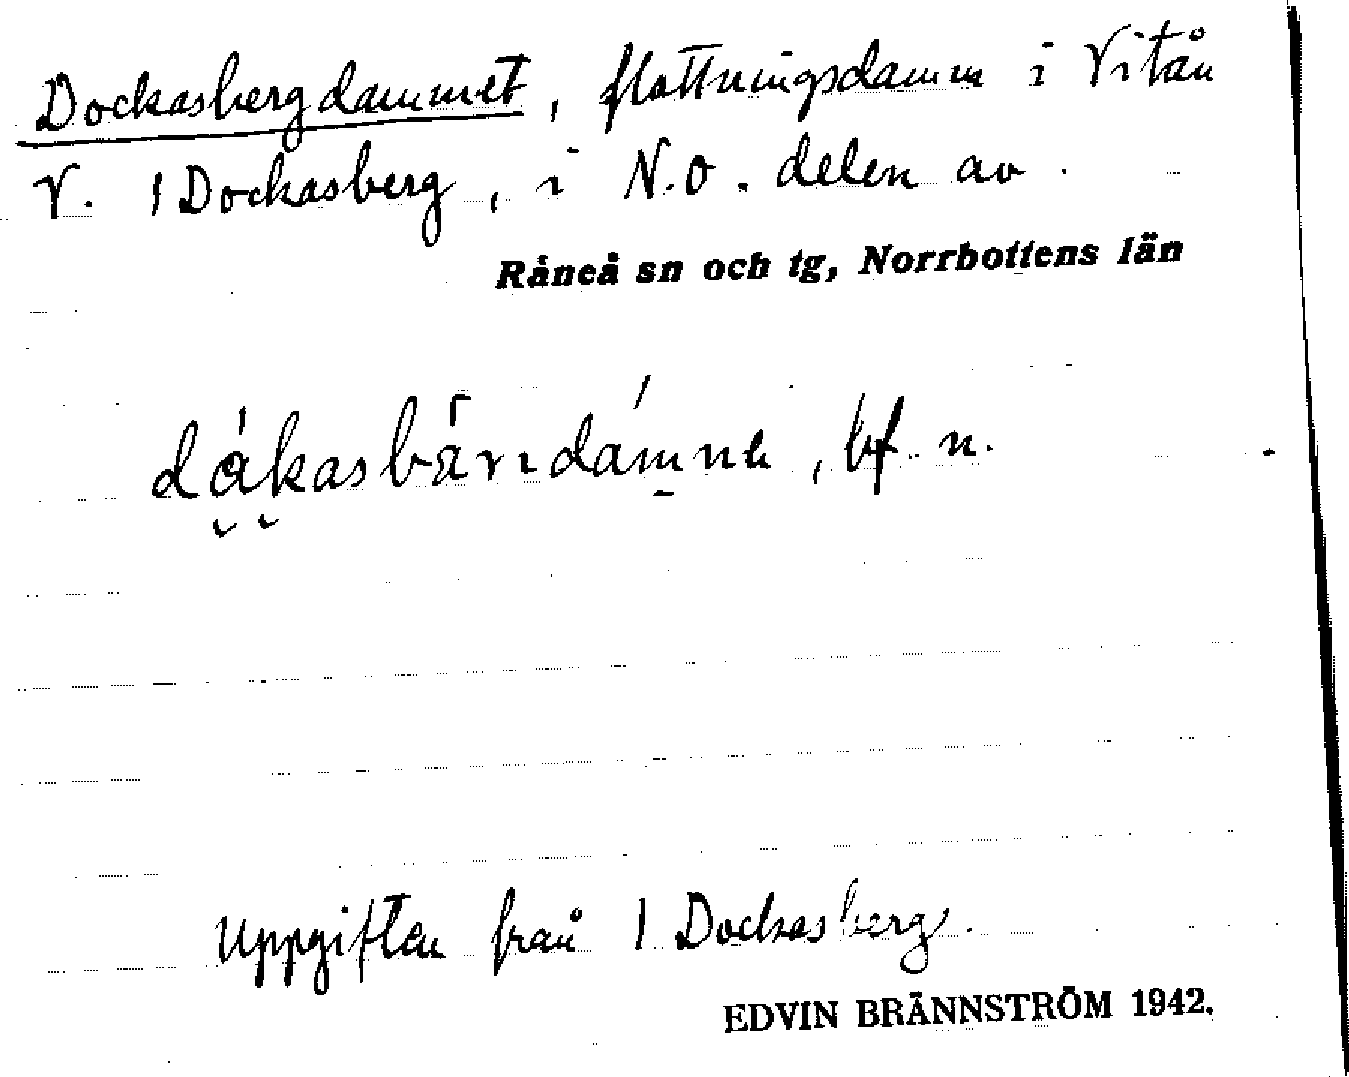 Dockasbergdammet, flottningsdamm i Vitån
V. 1 Dockasberg, i N.O. delen av
Råneå sn och tg, Norrbottens län
bf. n.
Uppgiften från 1 Dockasberg.
EDVIN BRÄNNSTRÖM 1942.